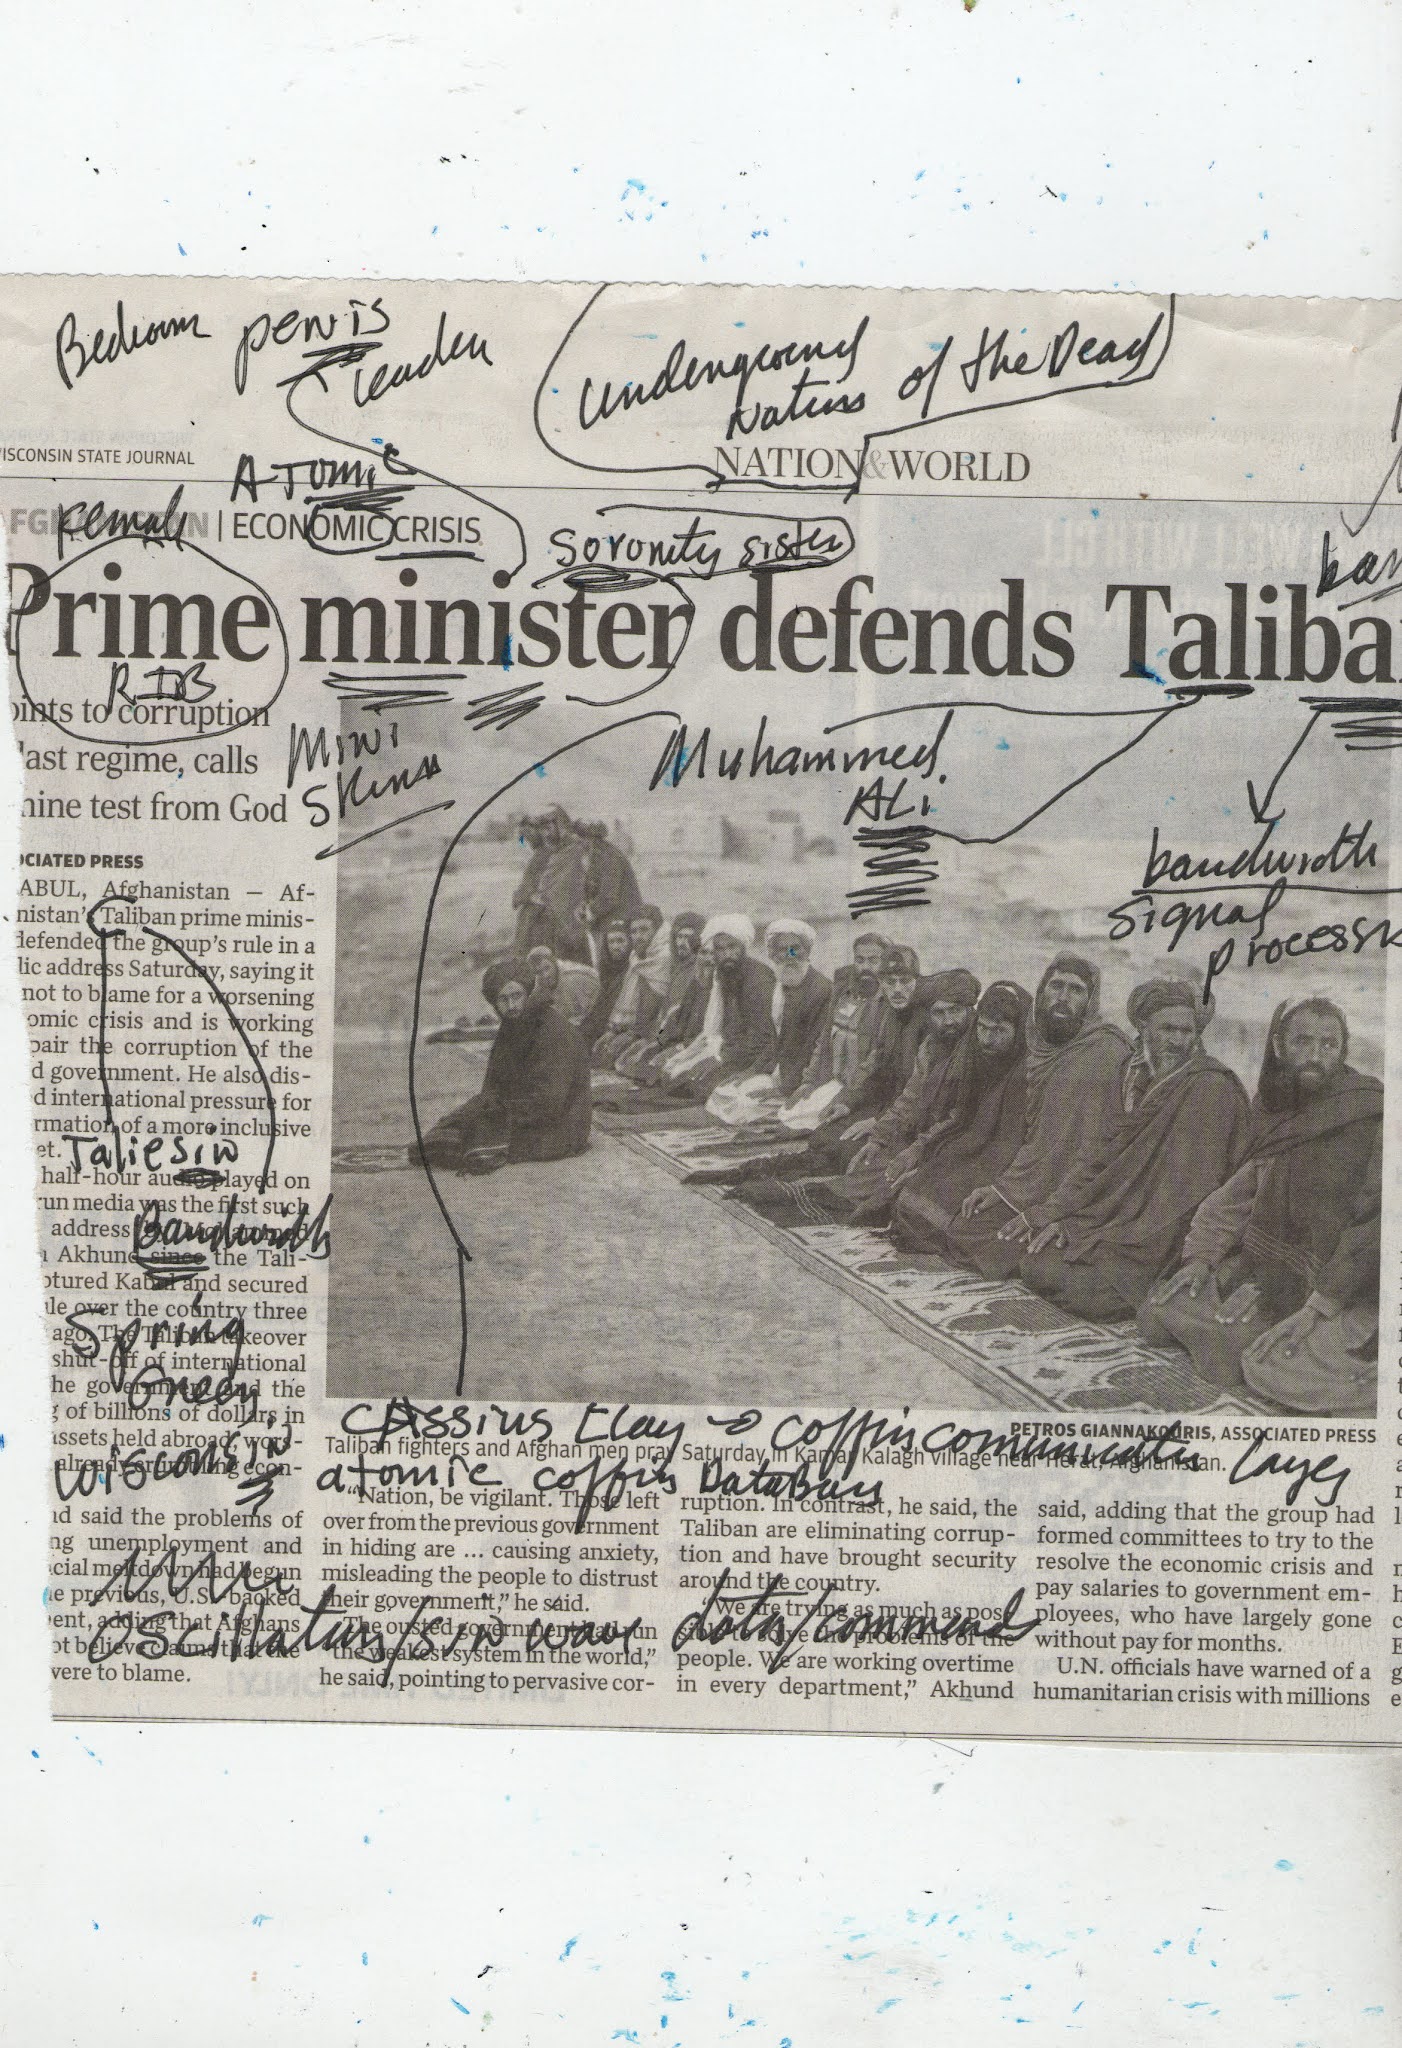 Bedroom penis
leader
underground
Nations of the Dead
WISCONSIN STATE JOURNAL
NATION&WORLD
Atomic
Female
| ECONOMIC CRISIS
Sorority sister
ban
Prime minister defends Taliba
RIB
oints to corruption
last regime, calls
nine test from God
Mini
Muhammed
ALi
bandwidth
Signal
OCIATED PRESS
ABUL, Afghanistan — Af-
nistan's Taliban prime minis-
defended the group's rule in a
lic address Saturday, saying it
not to blame for a worsening
omic crisis and is working
pair the corruption of the
d government. He also dis-
d international pressure for
rmation of a more inclusive
et.
Taliesin
half-hour audio played on
run media was the first such
address
Bandwidth
Akhund since the Tali-
ptured Kabul and secured
le over the country three
ago. The Taliban takeover
shut-off of international
he government and the
g of billions of dollars in
assets held abroad, wors-
already crippling econ-
Spring
Green
Wisconsin
nd said the problems of
ng unemployment and
cial meltdown had begun
e previous, U.S.-backed
ent, adding that Afghans
ot believe claims that the
were to blame.
Cassius Clay coffin layer
PETROS GIANNAKOURIS, ASSOCIATED PRESS
Taliban fighters and Afghan men pray Saturday in Kamar Kalagh village near Herat, Afghanistan.
atomic coffins
"Nation, be vigilant. Those left
over from the previous government
in hiding are ... causing anxiety,
misleading the people to distrust
their government," he said.
The ousted government had run
"the weakest system in the world,"
he said, pointing to pervasive cor-
ruption. In contrast, he said, the
Taliban are eliminating corrup-
tion and have brought security
around the country.
"We are trying as much as pos
sible to solve the problems of the
people. We are working overtime
in every department," Akhund
said, adding that the group had
formed committees to try to the
resolve the economic crisis and
pay salaries to government em-
ployees, who have largely gone
without pay for months.
U.N. officials have warned of a
humanitarian crisis with millions
Oscillations/sin wave data/commands